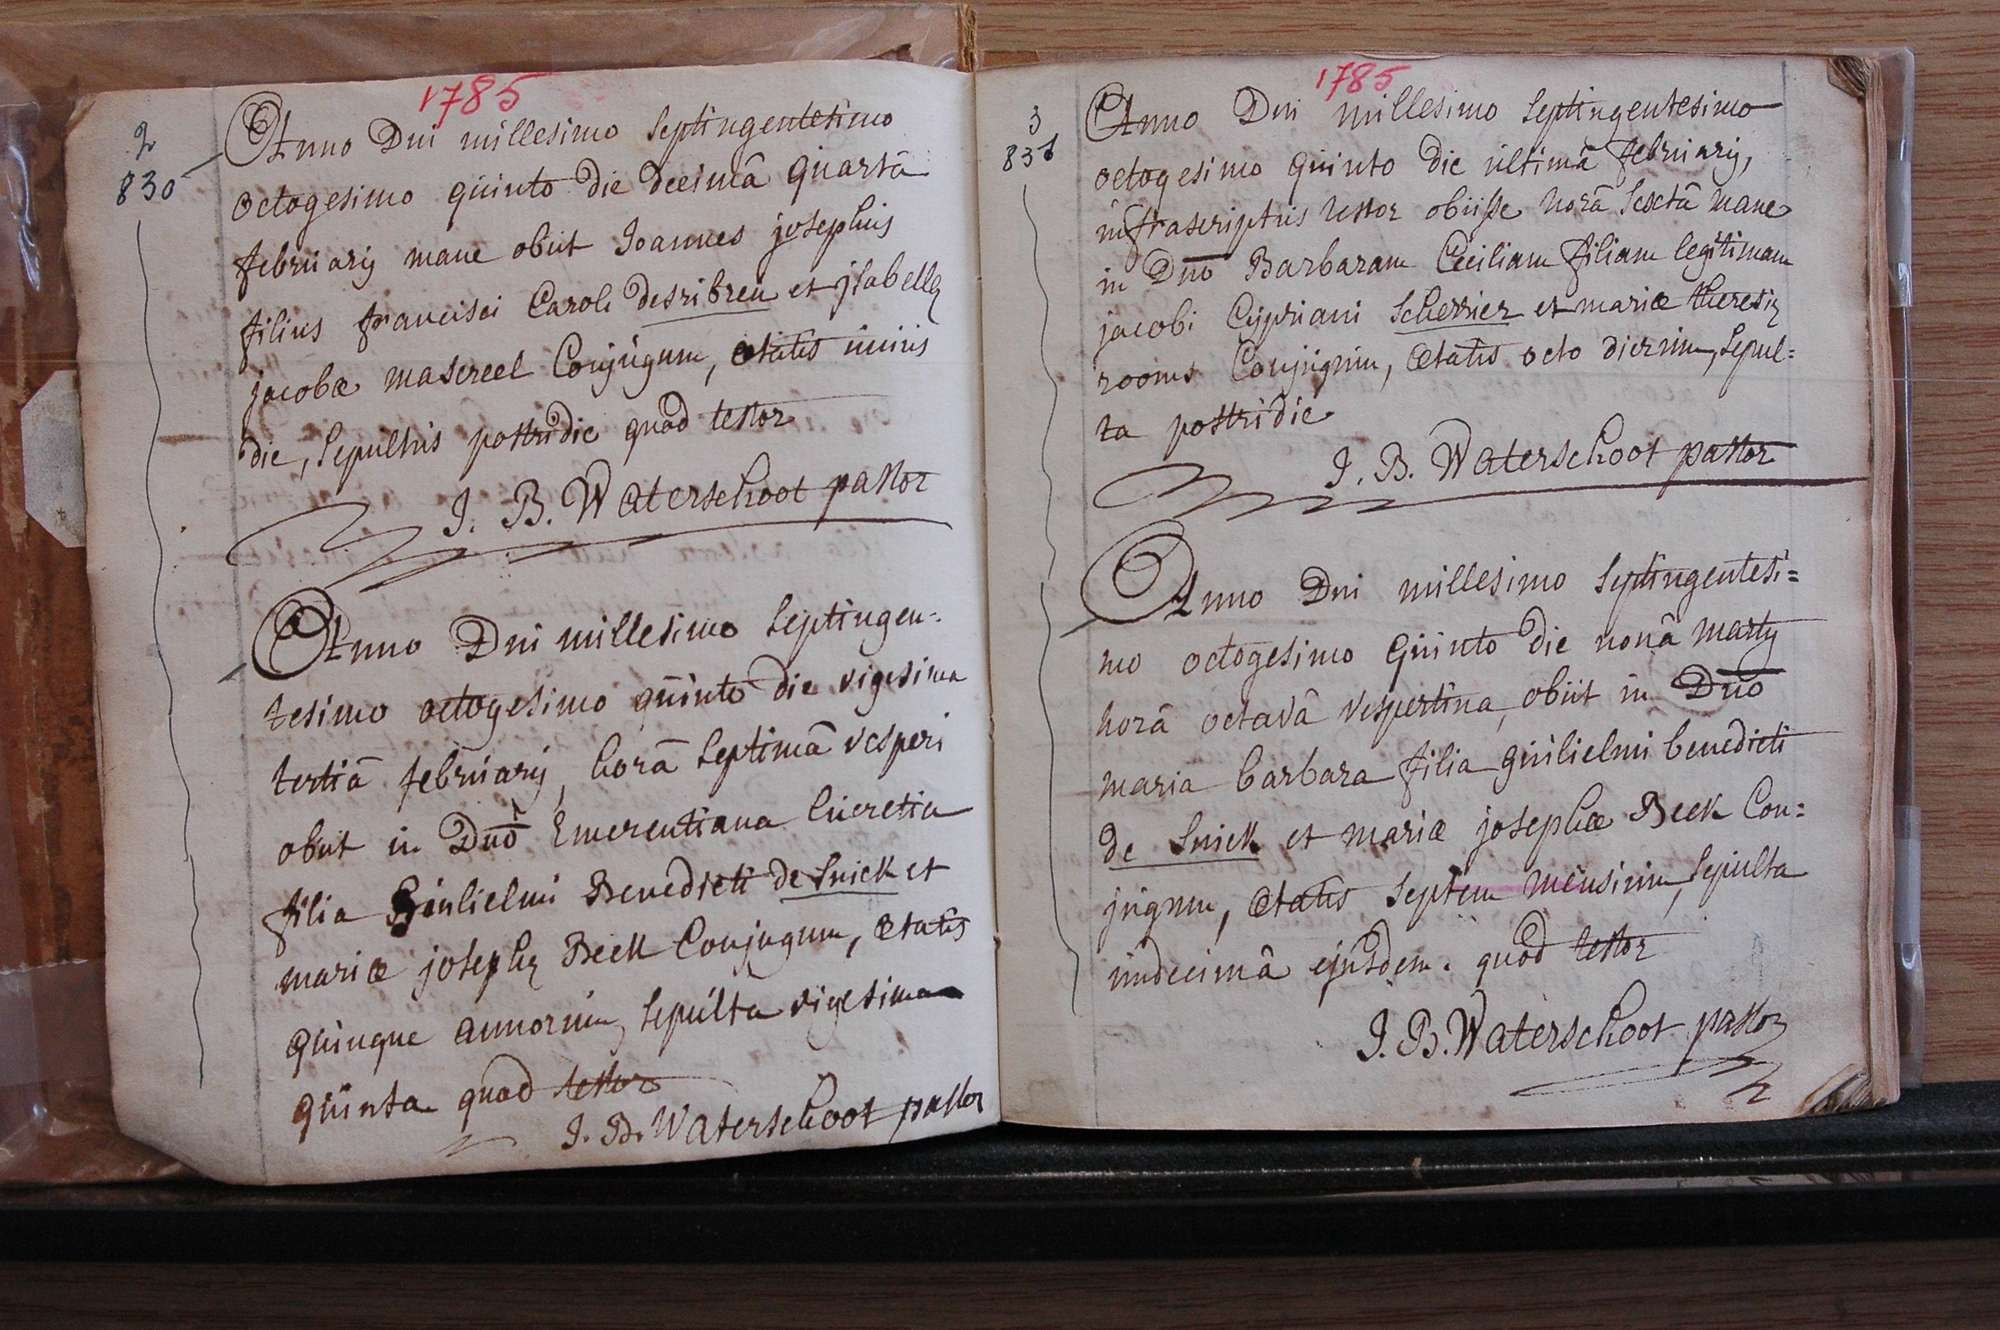 1785
2
830
Anno Dni millesimo septingentesimo
octogesimo quinto die decimâ quartâ
februarij mane obiit Joannes josephus
filius francisci Caroli desribreu et jsabellę
jacobæ masereel Conjugum, ætatis unius
die, sepultus postridie quod testor
J. B. Waterschoot pastor
Anno Dni millesimo septingen-
tesimo octogesimo quinto die vigesima
tertiâ februarij, horâ septimâ vesperi
obiit in Dnō Emerentiana lucretia
filia Guilielmi Benedicti de Snick et
mariæ josephę Beek Conjugum, ætatis
quinque annorum, sepulta vigesima
quinta quod testor
J. B. Waterschoot pastor
1785
3
831
Anno Dni millesimo septingentesimo
octogesimo quinto die ultimâ februarij,
infrascriptus testor obiisse horâ sextâ mane
in Dnō Barbaram Ceciliam filiam legitimam
jacobi Cypriani Scherrier et mariæ theresię
rooms Conjugum, ætatis octo dierum, sepul=
ta postridie
J. B. Waterschoot pastor
Anno Dni millesimo septingentesi=
mo octogesimo quinto die nonâ martij
horâ octavâ vespertina, obiit in Dnō
maria barbara filia guilielmi benedicti
de Snick et mariæ josephæ Beek Con=
jugum, ætatis septem mensium, sepulta
undecimâ ejusdem. quod testor
J. B. Waterschoot pastor